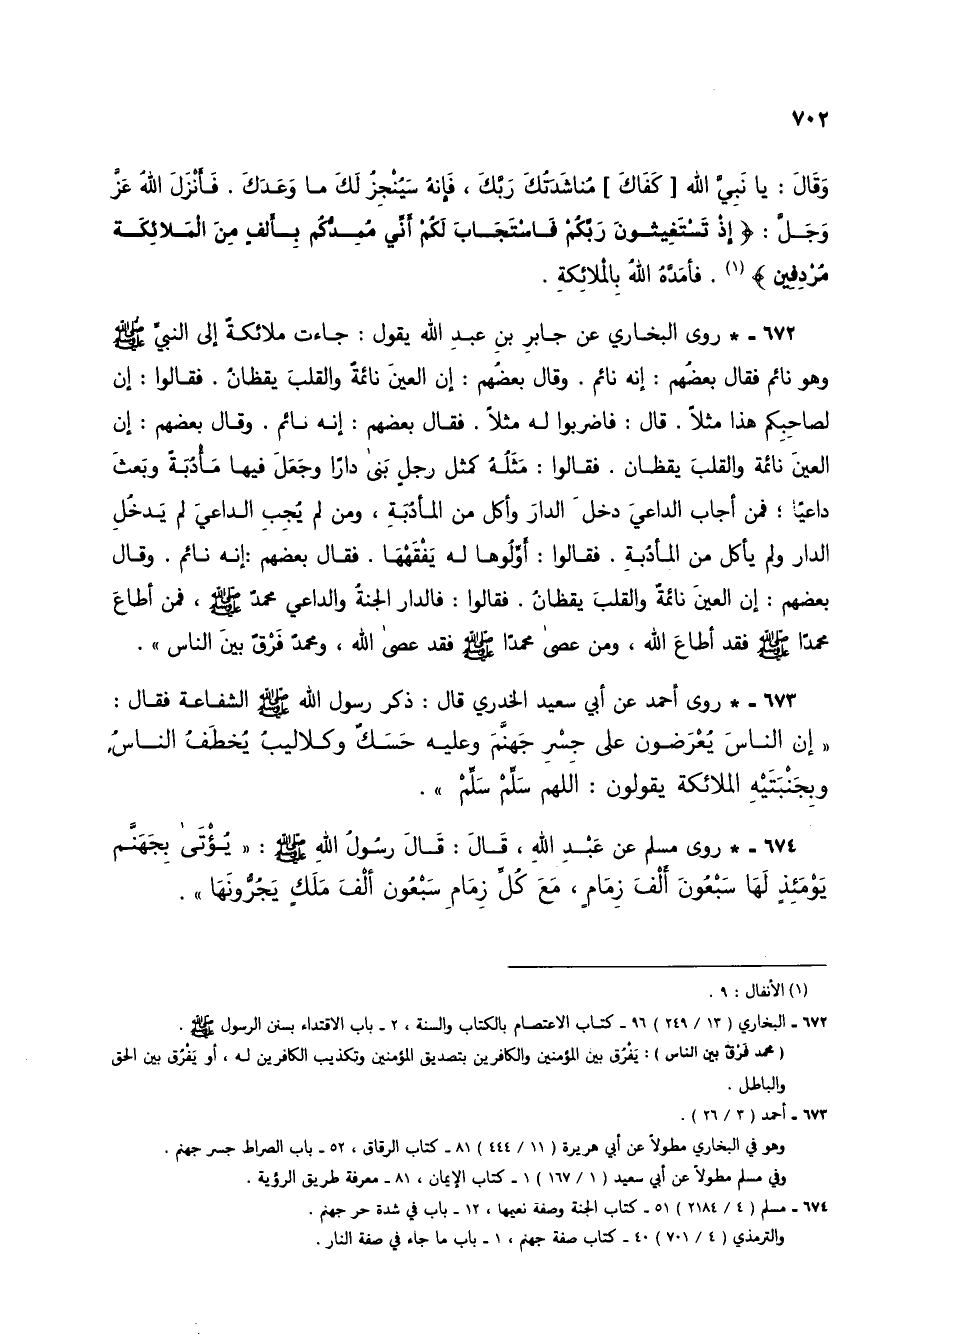 ٧٠٢
وَقَالَ : يا نَبِيَّ الله [ كَفَاكَ ] مُناشَدَتُكَ رَبَّكَ ، فَإِنهُ سَيُنْجِزُ لَكَ ما وَعَدَكَ . فَأَنْزَلَ اللهُ عَزَّ
وَجَلَّ : ﴿ إِذْ تَسْتَغِيثُونَ رَبَّكُمْ فَاسْتَجَابَ لَكُمْ أَنِّي مُمِدُّكُم بِأَلفٍ مِنَ الْمَلائِكَةِ
مُرْدِفِين ﴾ (١) . فأمَدَّهُ اللهُ بِالْملائِكةِ .
٦٧٢ ـ * روى البخاري عن جابرِ بنِ عبدِ الله يقول : جاءت ملائكةٌ إلى النبيِّ ﷺ
وهو نائم فقال بعضُهم : إنه نائم . وقال بعضُهم : إن العينَ نائمةٌ والقلبَ يقظانُ . فقالوا : إن
لصاحبِكم هذا مثلاً . قال : فاضربوا له مثلاً . فقال بعضهم : إنه نائم . وقال بعضهم : إن
العينَ نائمة والقلبَ يقظان . فقالوا : مَثَلُهُ كمثل رجلٍ بَنىٰ دارًا وجَعَلَ فيها مَأْدُبَةً وبَعثَ
داعيًا ؛ فمن أجاب الداعيَ دخلَ الدارَ وأكل من المأدُبَةِ ، ومن لم يُجِبِ الداعيَ لم يَدخُلِ
الدار ولم يأكل من المأدُبةِ . فقالوا : أوِّلُوها له يَفْقَهْهَا . فقال بعضهم :إنه نائم . وقال
بعضهم : إن العينَ نائمةٌ والقلبَ يقظانُ . فقالوا : فالدار الجنةُ والداعي محمدٌ ﷺ ، فمن أطاعَ
محمدًا ﷺ فقد أطاعَ الله ، ومن عصىٰ محمدًا ﷺ فقد عصىٰ الله ، ومحمدٌ فَرْقٌ بينَ الناس » .
٦٧٣ ـ * روى أحمد عن أبي سعيد الخدري قال : ذكر رسول الله ﷺ الشفاعة فقال :
« إن الناسَ يُعْرَضون على جِسْرِ جَهنَّمَ وعليه حَسَكٌ وكلاليبُ يُخطَفُ الناسُ،
وبِجَنْبَتَيْهِ الملائكة يقولون : اللهم سَلِّمْ سَلِّمْ » .
٦٧٤ ـ * روى مسلم عن عَبْدِ اللهِ ، قَالَ : قَالَ رسُولُ اللهِ ﷺ : « يُؤْتَىٰ بِجَهَنَّم
يَوْمَئِذٍ لَهَا سَبْعُونَ أَلْفَ زِمَامٍ ، مَعَ كُلِّ زِمَامٍ سَبْعُون ألْفَ مَلَكٍ يَجُرُّونَهَا » .
(١) الأنفال : ٩ .
٦٧٢ ـ البخاري ( ١٣ / ٢٤٩ ) ٩٦ ـ كتاب الاعتصام بالكتاب والسنة ، ٢ ـ باب الاقتداء بسنن الرسول ﷺ .
( محمد فَرْقٌ بين الناس ) : يَفْرُق بين المؤمنين والكافرين بتصديق المؤمنين وتكذيب الكافرين له ، أو يَفْرُق بين الحق
والباطل .
٦٧٣ ـ أحمد ( ٣ / ٢٦ ) .
وهو في البخاري مطولاً عن أبي هريرة ( ١١ / ٤٤٤ ) ٨١ ـ كتاب الرقاق ، ٥٢ ـ باب الصراط جسر جهنم .
وفي مسلم مطولاً عن أبي سعيد ( ١ / ١٦٧ ) ١ ـ كتاب الإيمان ، ٨١ ـ معرفة طريق الرؤية .
٦٧٤ ـ مسلم ( ٤ / ٢١٨٤ ) ٥١ ـ كتاب الجنة وصفة نعيمها ، ١٢ ـ باب في شدة حر جهنم .
والترمذي ( ٤ / ٧٠١ ) ٤٠ ـ كتاب صفة جهنم ، ١ ـ باب ما جاء في صفة النار .